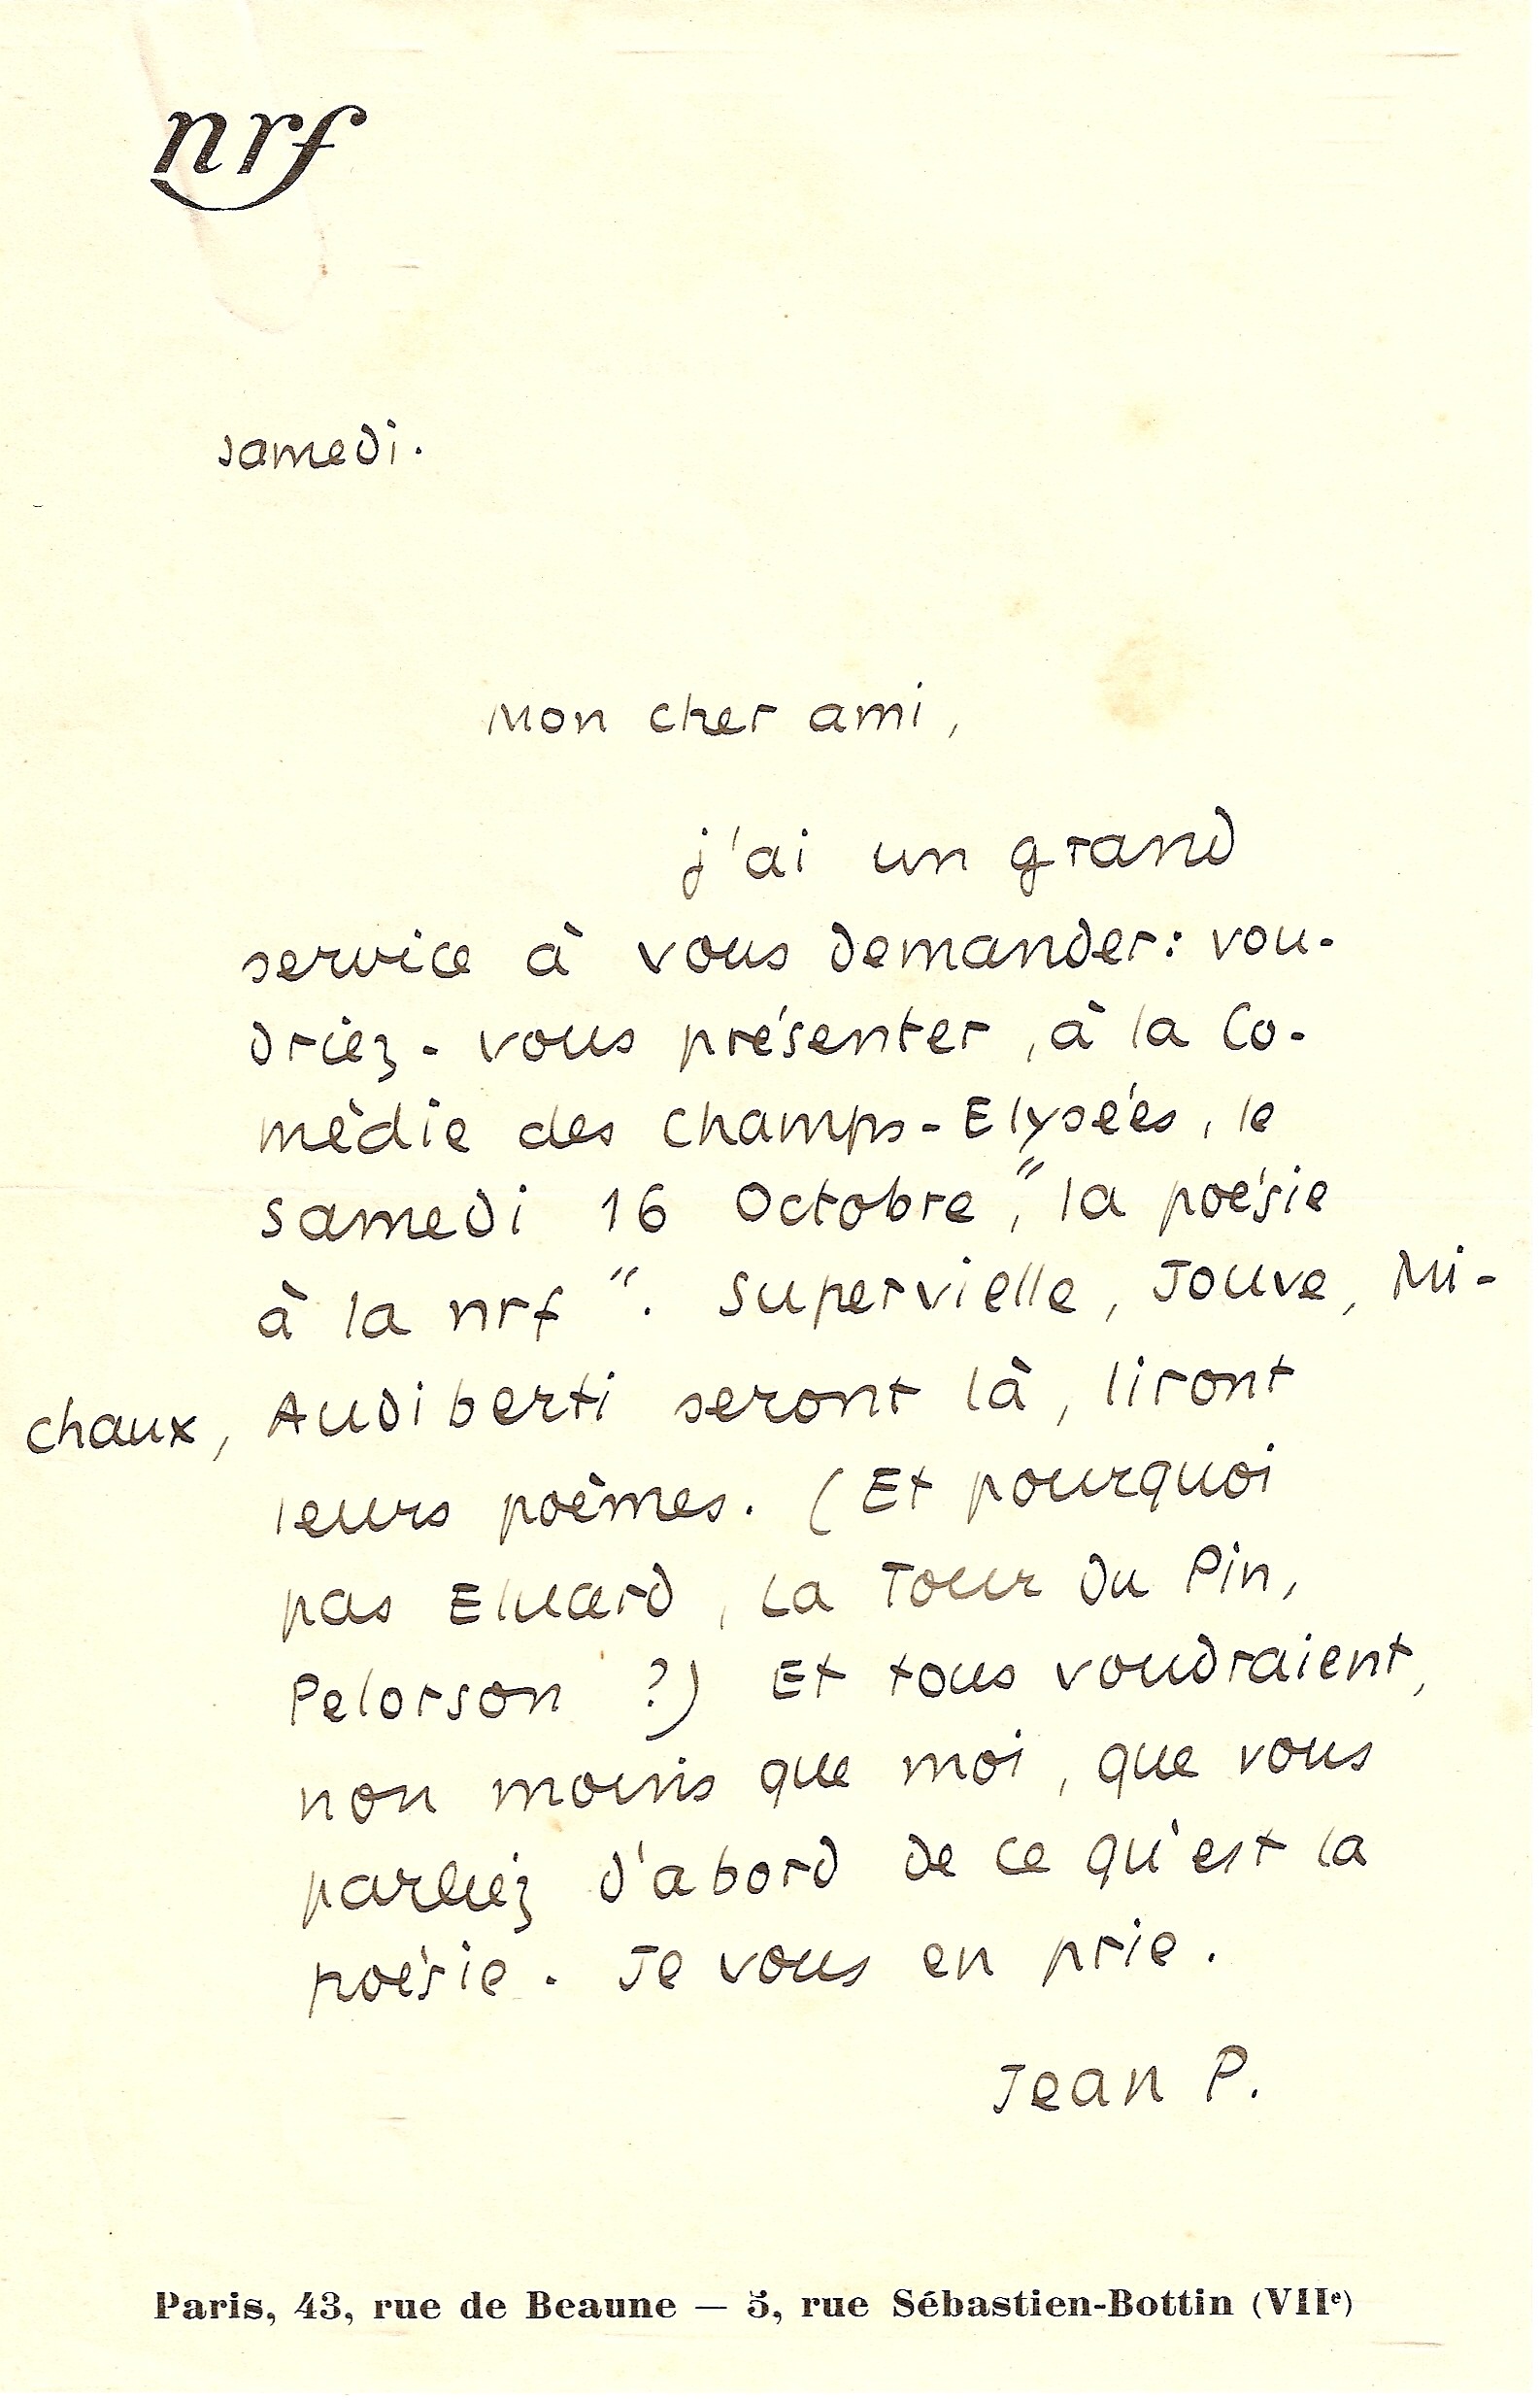 nrf
samedi.
Mon cher ami,
j'ai un grand
service à vous demander: vou-
driez-vous présenter, à la Co-
médie des Champs-Elysées, le
samedi 16 Octobre, "la poésie
à la nrf". Supervielle, Jouve, Mi-
chaux, Audiberti seront là, liront
leurs poèmes. (Et pourquoi
pas Eluard, La Tour du Pin,
Pelorson ?) Et tous voudraient,
non moins que moi, que vous
parliez d'abord de ce qu'est la
poésie. Je vous en prie.
Jean P.
Paris, 43, rue de Beaune — 5, rue Sébastien-Bottin (VIIe)